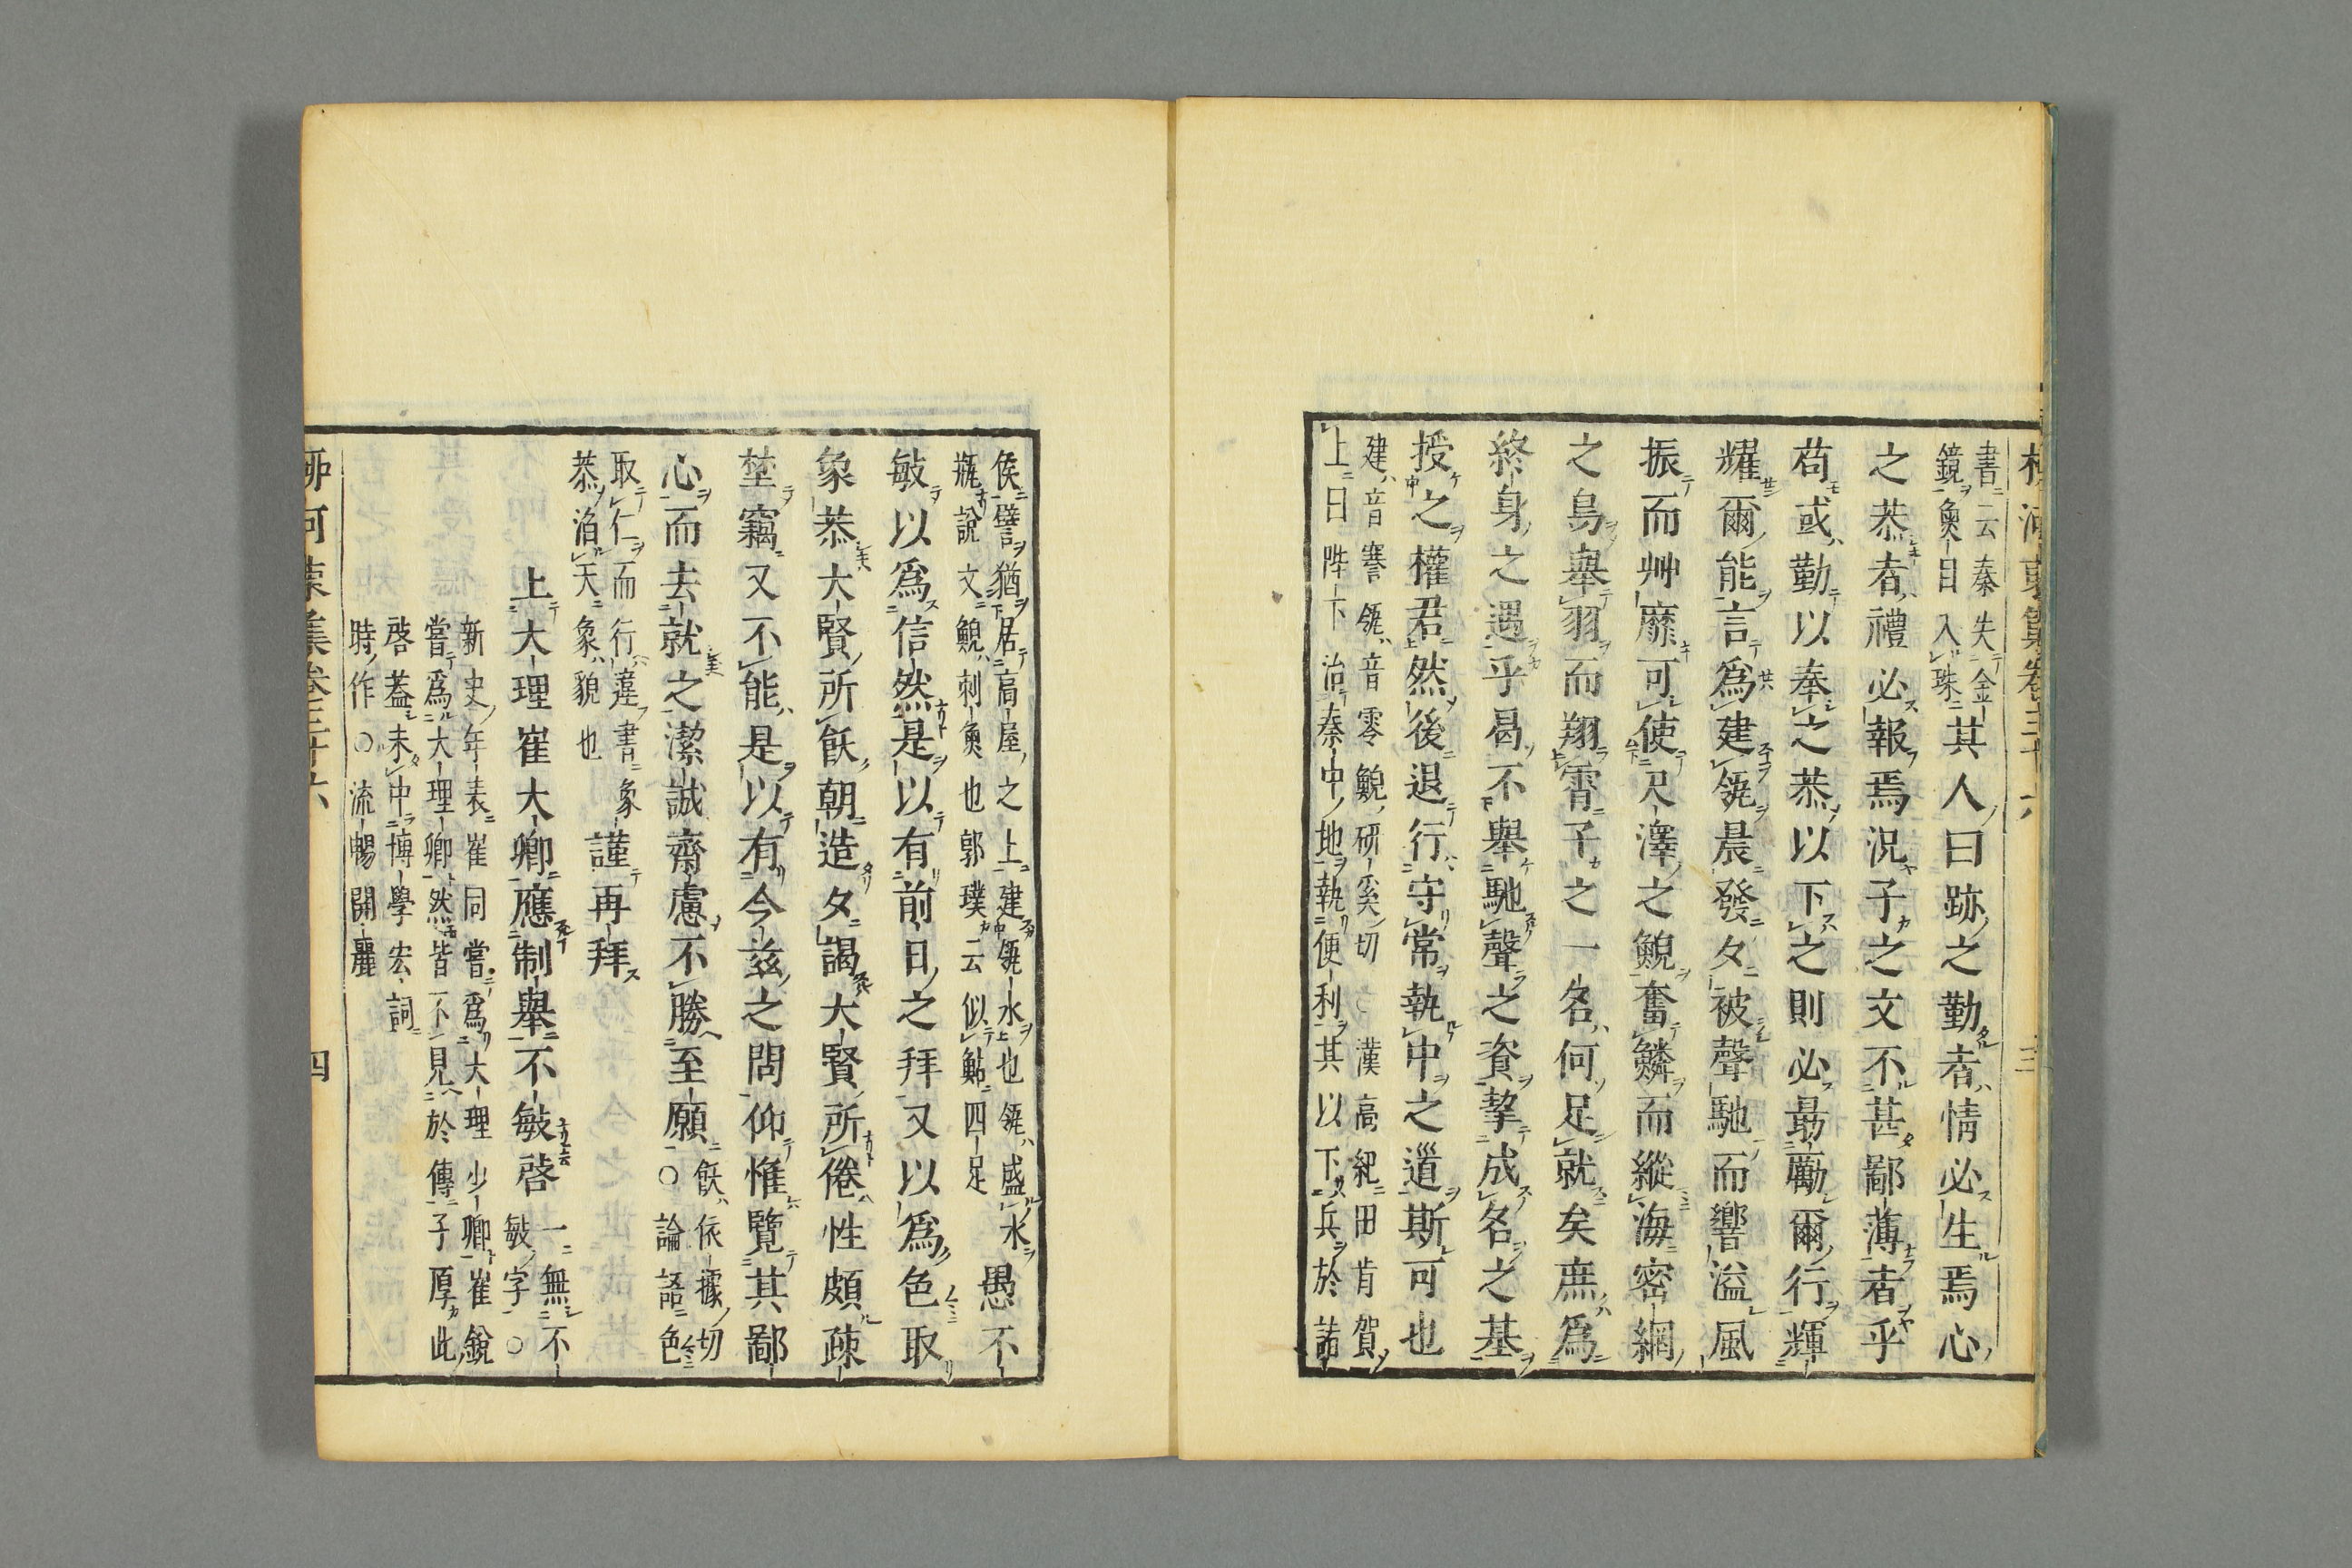 柳河東集卷三十六
三
書云秦失金
鏡魚目入珠其人曰跡之勤者情必生焉心
之恭者禮必報焉況子之文不甚鄙薄者乎
苟或勤以奉之恭以下之則必最勵爾行輝
耀爾能言爲建瓴晨發夕被聲馳而響溢風
振而艸靡可使尺澤之鯢奮鱗而縱海密網
之鳥舉羽而翔霄子之一名何足就矣庶爲
終身之遇乎曷不舉馳聲之資挈成名之基
授之權君然後退行守常執中之道斯可也
建音蹇瓴音零鯢研奚切○漢高紀田肯賀
上曰陛下治秦中地執便利其以下兵於諸
侯譬猶居高屋之上建瓴水也瓴盛水
瓶說文鯢刺魚也郭璞云似鮎四足愚不
敏以爲信然是以有前日之拜又以爲色取
象恭大賢所飫朝造夕謁大賢所倦性頗疎
埜竊又不能是以有今茲之問仰惟覽其鄙
心而去就之潔誠齋慮不勝至願飫依據切
○論語色
取仁而行違書象
恭滔天象貌也謹再拜
上大理崔大卿應制舉不敏啓一無不
敏字○
新史年表崔同嘗爲大理少卿崔銳
嘗爲大理卿然皆不見於傳子厚此
啓蓋未中博學宏詞
時作○流暢開麗
柳河東集卷三十六
四